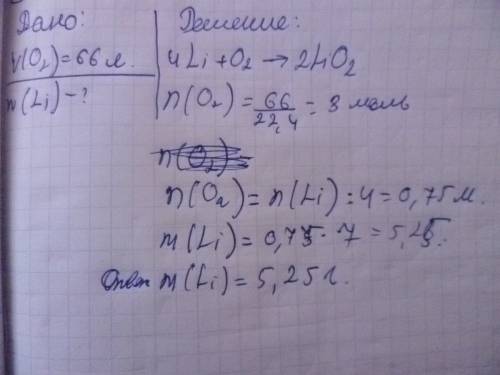 Дано:
V(O₂)=66 л.
m(Li)-?
Решение:
4Li+O₂→2LiO₂
n(O₂)=66/22,4=3 моль
n(O₂)=
n(O₂)=n(Li):4=0,75м.
m(Li)=0,75·7=5,25.
Ответ m(Li)=5,25г.